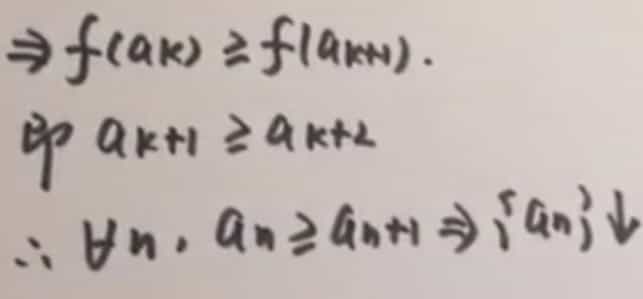 ⇒ f(aₖ) ≥ f(aₖ₊₁).
即 aₖ₊₁ ≥ aₖ₊₂
∴ ∀n, aₙ ≥ aₙ₊₁ ⇒ {aₙ}↓